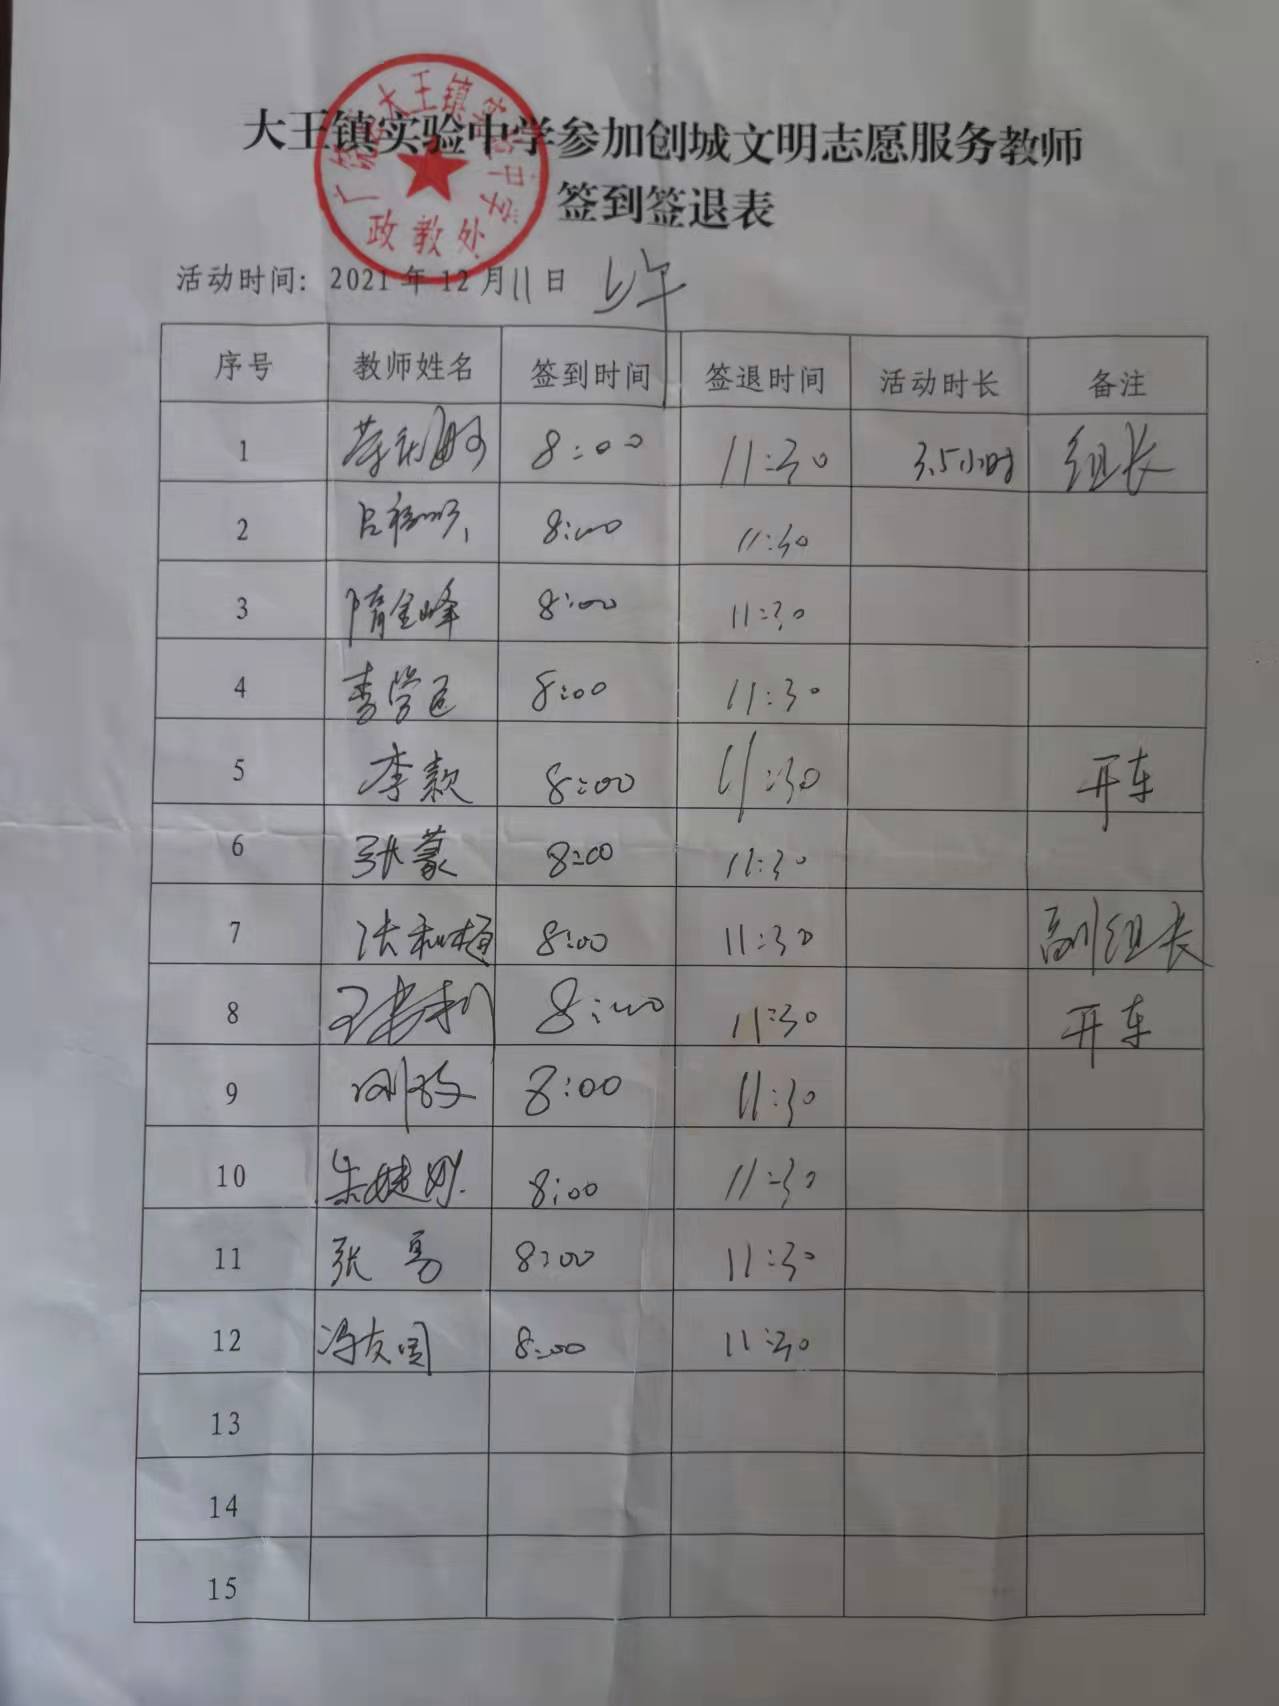 广饶县大王镇实验中学
政教处
大王镇实验中学参加创城文明志愿服务教师
签到签退表
活动时间: 2021 年 12 月 11 日 上午
序号 教师姓名 签到时间 签退时间 活动时长 备注
1 8:00 11:30 3.5小时 组长
2 8:00 11:30
3 隋金峰 8:00 11:30
4 8:00 11:30
5 李款 8:00 11:30 开车
6 张蒙 8:00 11:30
7 8:00 11:30 副组长
8 8:00 11:30 开车
9 8:00 11:30
10 8:00 11:30
11 张勇 8:00 11:30
12 冯友国 8:00 11:30
13
14
15